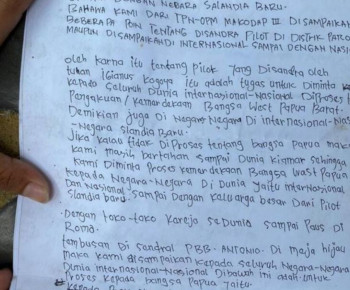 DENGAN NEGARA SALANDIA BARU.
BAHAWA KAMI DARI TPN-OPM MAKODAP III DISAMPAIKA
BEBERAPA POIN TENTANG DISANDRA PILOT DI DISTRIK PARO
MAUPUN DISAMPAIKAN DI INTERNASIONAL SAMPAI DENGAN NASI
oleh karna itu tentang Pilot Yang Disandra oleh
tuhan IGianus Kogoya Itu adalah tugas untuk Diminta k
kepada Seluruh Dunia internasional-Nasional DiProses
Pengakuan / Kemerdekaan Bangsa West Papua Barat.
Demikian Juga Di Negara-Negara Di internasional-Nas
-Negara Slandia Baru.
Jika kalau tidak DiProses tentang bangsa Papua mak
kami masih bertahan sampai Dunia kiamat sehingga
kami Diminta Proses kemerdekaan Bangsa West Papua
kepada Negara-Negara Di Dunia yaitu internasional
Dan Nasional, sampai Dengan keluarga besar Dari Pilot
Slandia baru.
-Dengan toko-toko Kareja seDunia sampai Paus Di
Roma.
tembusan Di sandral PBB-ANTONIO. Di maja hijau
maka kami disampaikan kepada seluruh Negara-Negara
Dunia internasional-Nasional Dibawah ini adalah untuk
Proses kepada bangsa Papua Yaitu
kepada